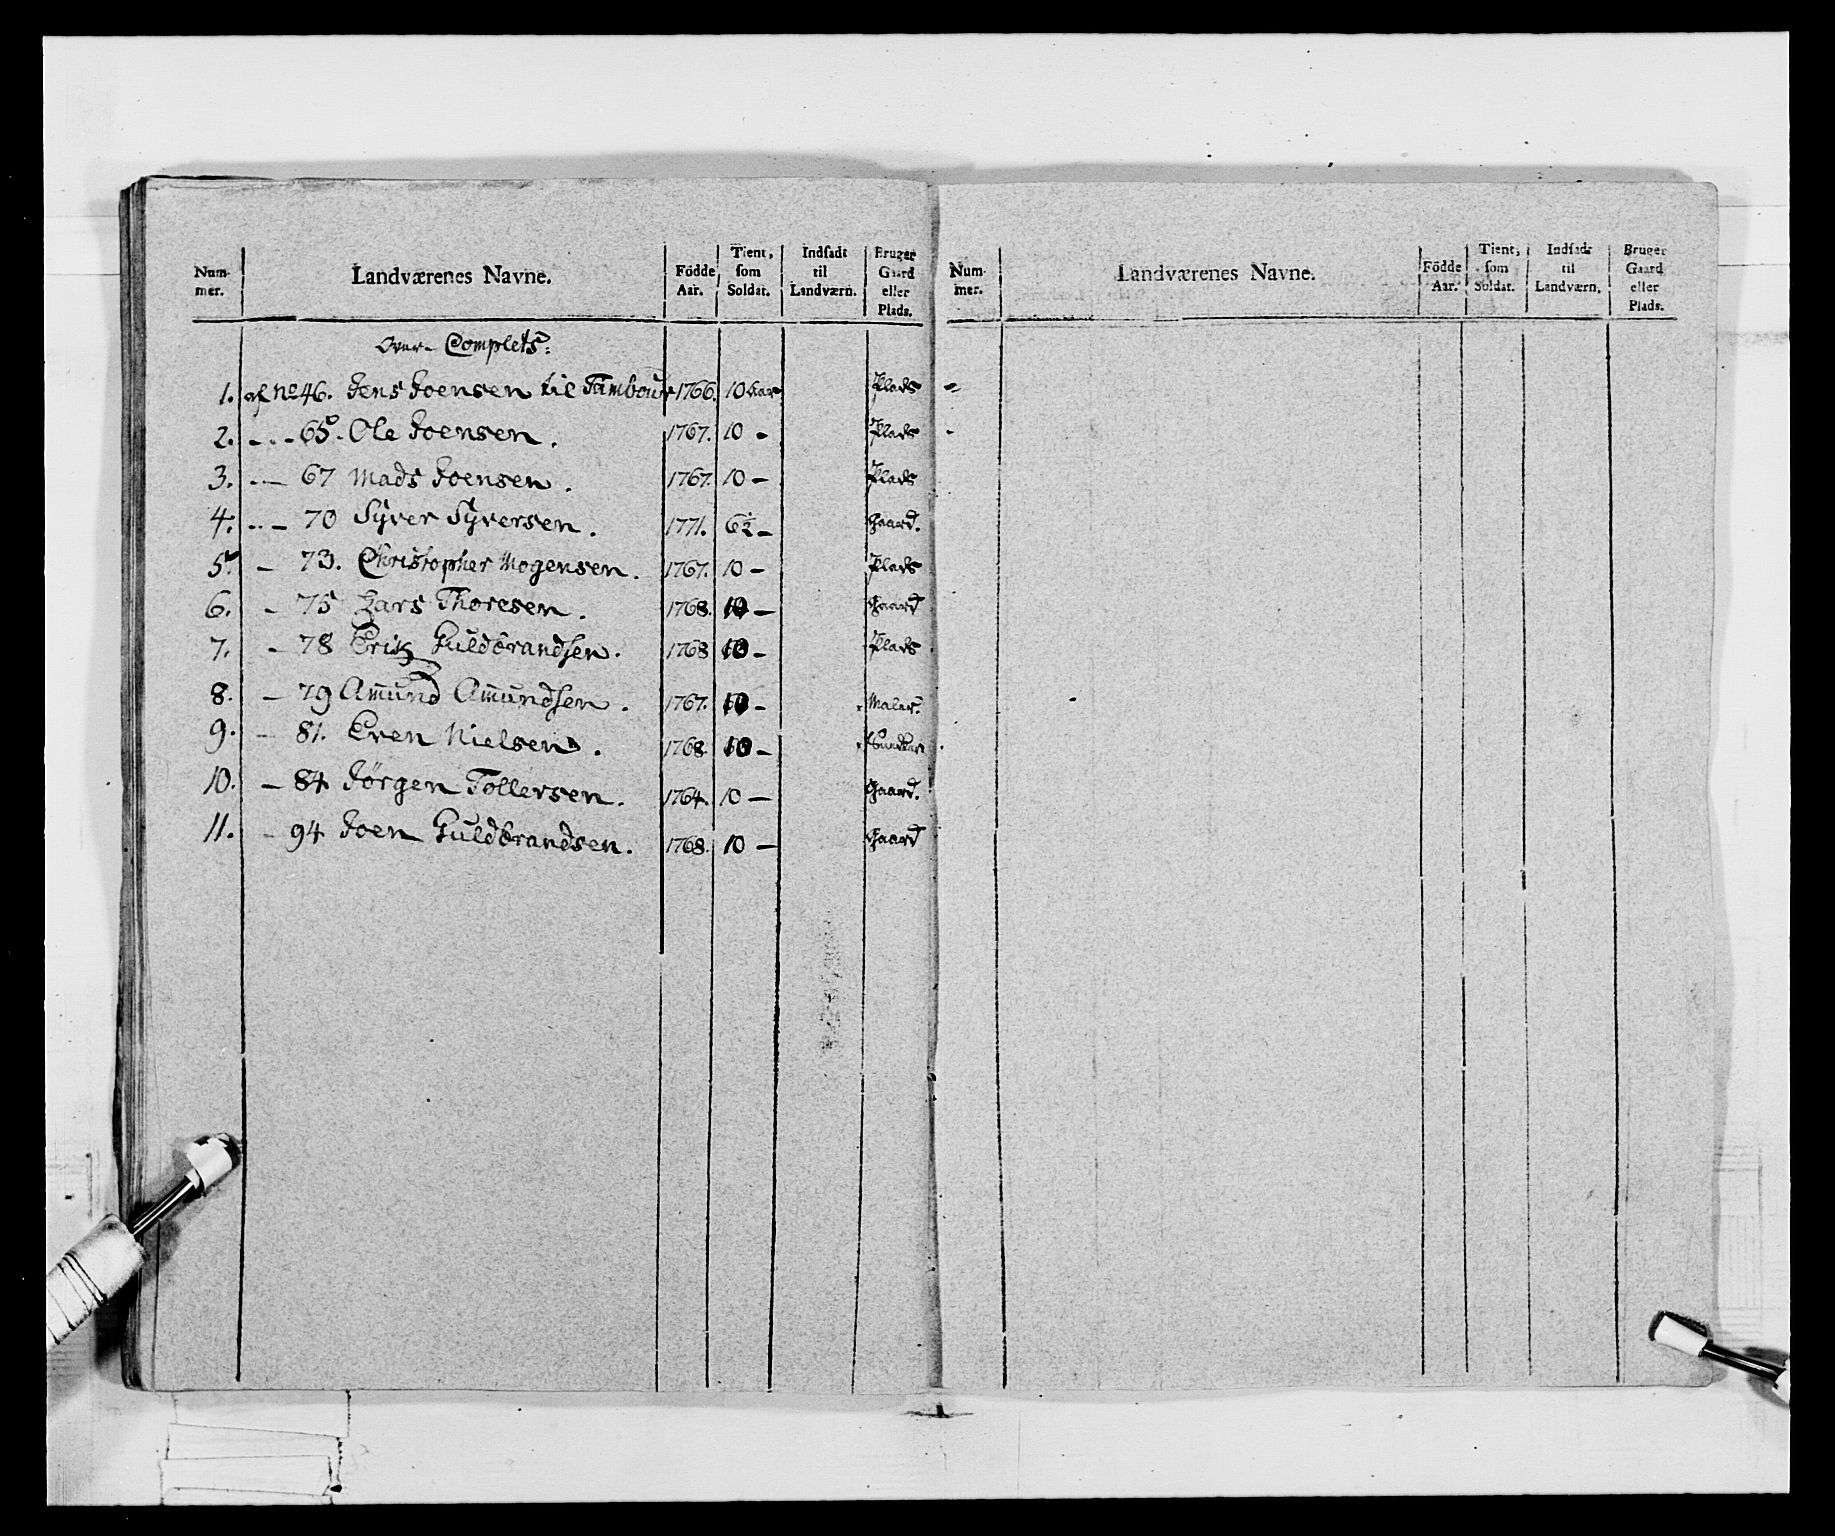 Num- mer. Landværenes Navne. Födde Aar. Tient, som Soldat. Indsadt til Landværn. Bruger Gaard eller Plads.
Over- Complets:
1. af No 46. Jens Joensen til Tambour 1766. 10 Aar Plads
2. - - - 65. Ole Joensen. 1767. 10 - Plads
3. - - - 67 Mads Joensen. 1767. 10 - Plads
4. - - - 70 Syver Syversen. 1771. 6½ - Gaard.
5. - 73. Christopher Mogensen. 1767. 10 - Plads
6. - 75 Lars Thoresen. 1768. 10 - Gaard
7. - 78 Erik Guldbrandsen. 1768 10 - Plads
8. - 79 Amund Amundsen. 1767. 10 - Maler.
9. - 81. Even Nielsen. 1768. 10 -
10. - 84 Jörgen Tollersen. 1764. 10 - Gaard.
11. - 94 Joen Guldbrandsen. 1768. 10 - Gaard
Num- mer. Landværenes Navne. Födde Aar. Tient, som Soldat. Indsadt til Landværn. Bruger Gaard eller Plads.